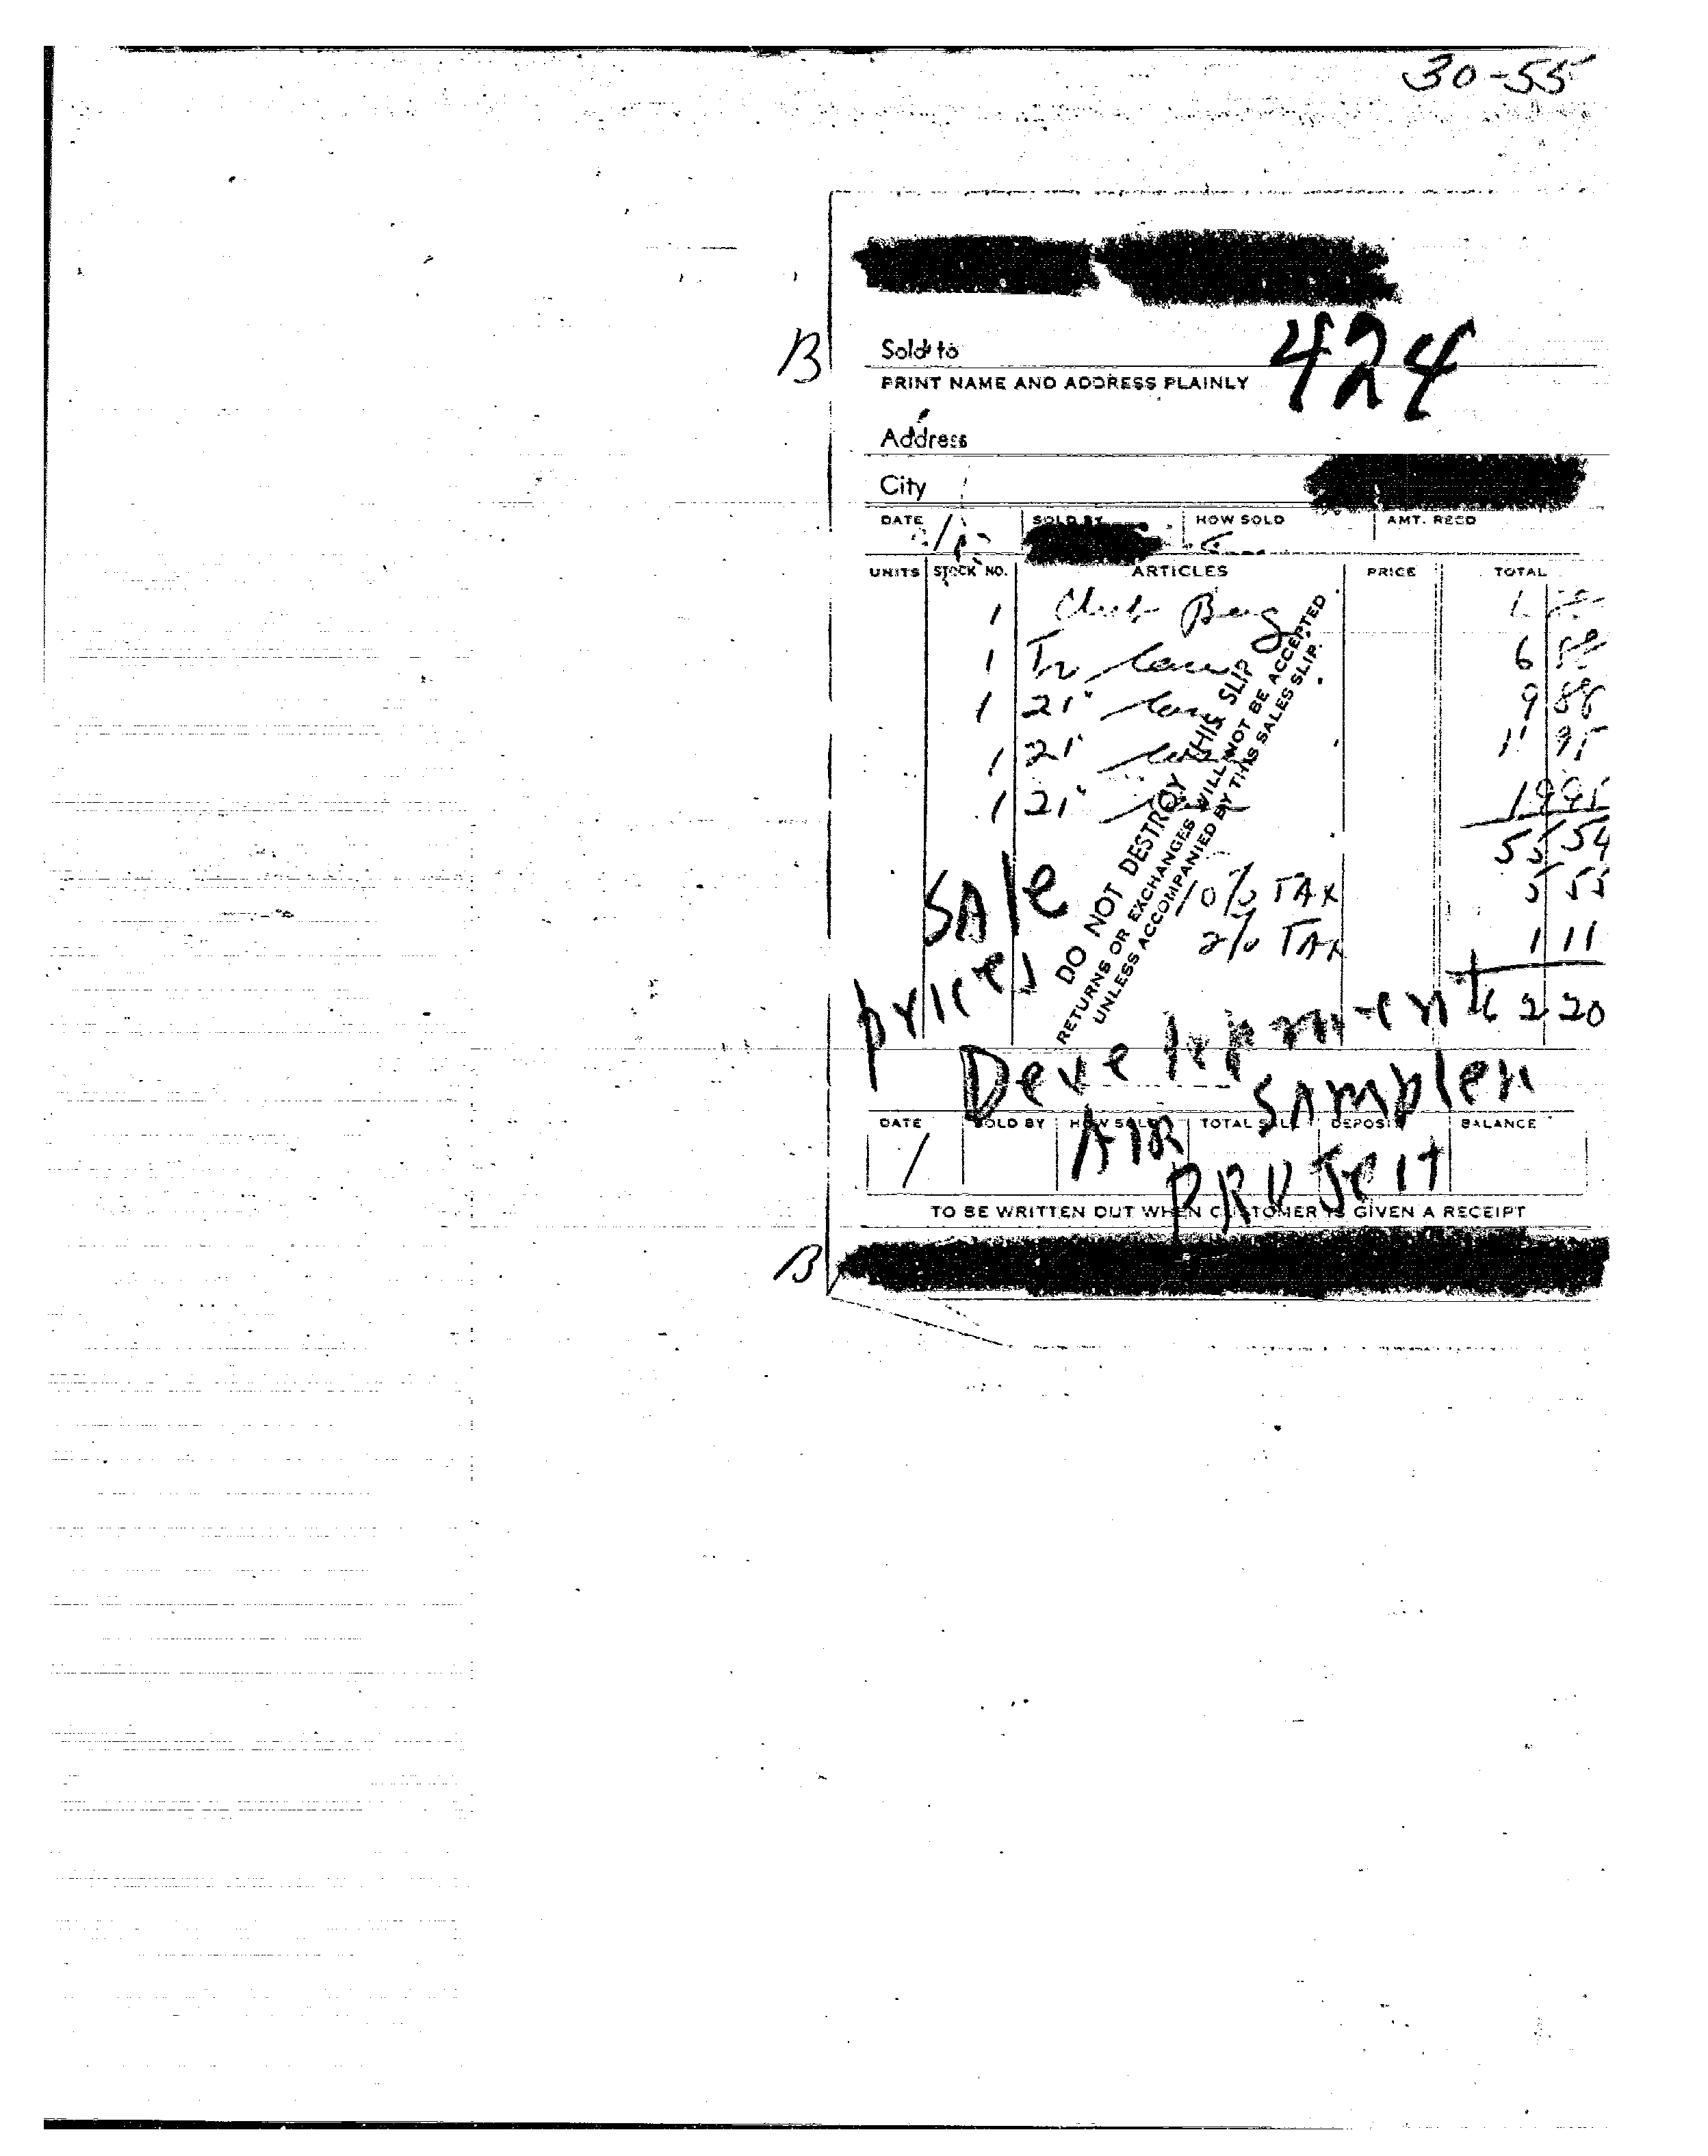 30-55
B
Sold to
424
PRINT NAME AND ADDRESS PLAINLY
Address
City
DATE SOLD BY HOW SOLD AMT. REC'D
UNITS STOCK NO. ARTICLES PRICE TOTAL
1 Bag 1
1 6
1 21" 9 88
1 21" 11 95
1 21" 19 95
55 54
10% TAX 5 55
2% TAX 1 11
62 20
DO NOT DESTROY THIS SLIP
RETURNS OR EXCHANGES WILL NOT BE ACCEPTED
UNLESS ACCOMPANIED BY THIS SALES SLIP.
SAle
prices
Development
SAmpler
AIR
PROJect
DATE SOLD BY HOW SOLD TOTAL SALE DEPOSIT BALANCE
/
TO BE WRITTEN OUT WHEN CUSTOMER IS GIVEN A RECEIPT
B